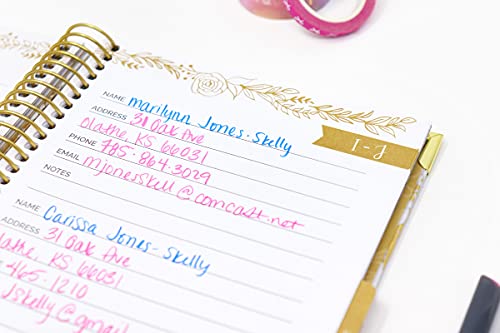 NAME marilynn Jones-Skelly
ADDRESS 31 Oak Ave
Olathe, KS 66031
PHONE 785-864-3029
EMAIL mjonesskell@comcast.net
NOTES
I-J
NAME Carissa Jones-Skelly
ADDRESS 31 Oak Ave
Olathe, KS 66031
465-1210
Jskelly@gmail